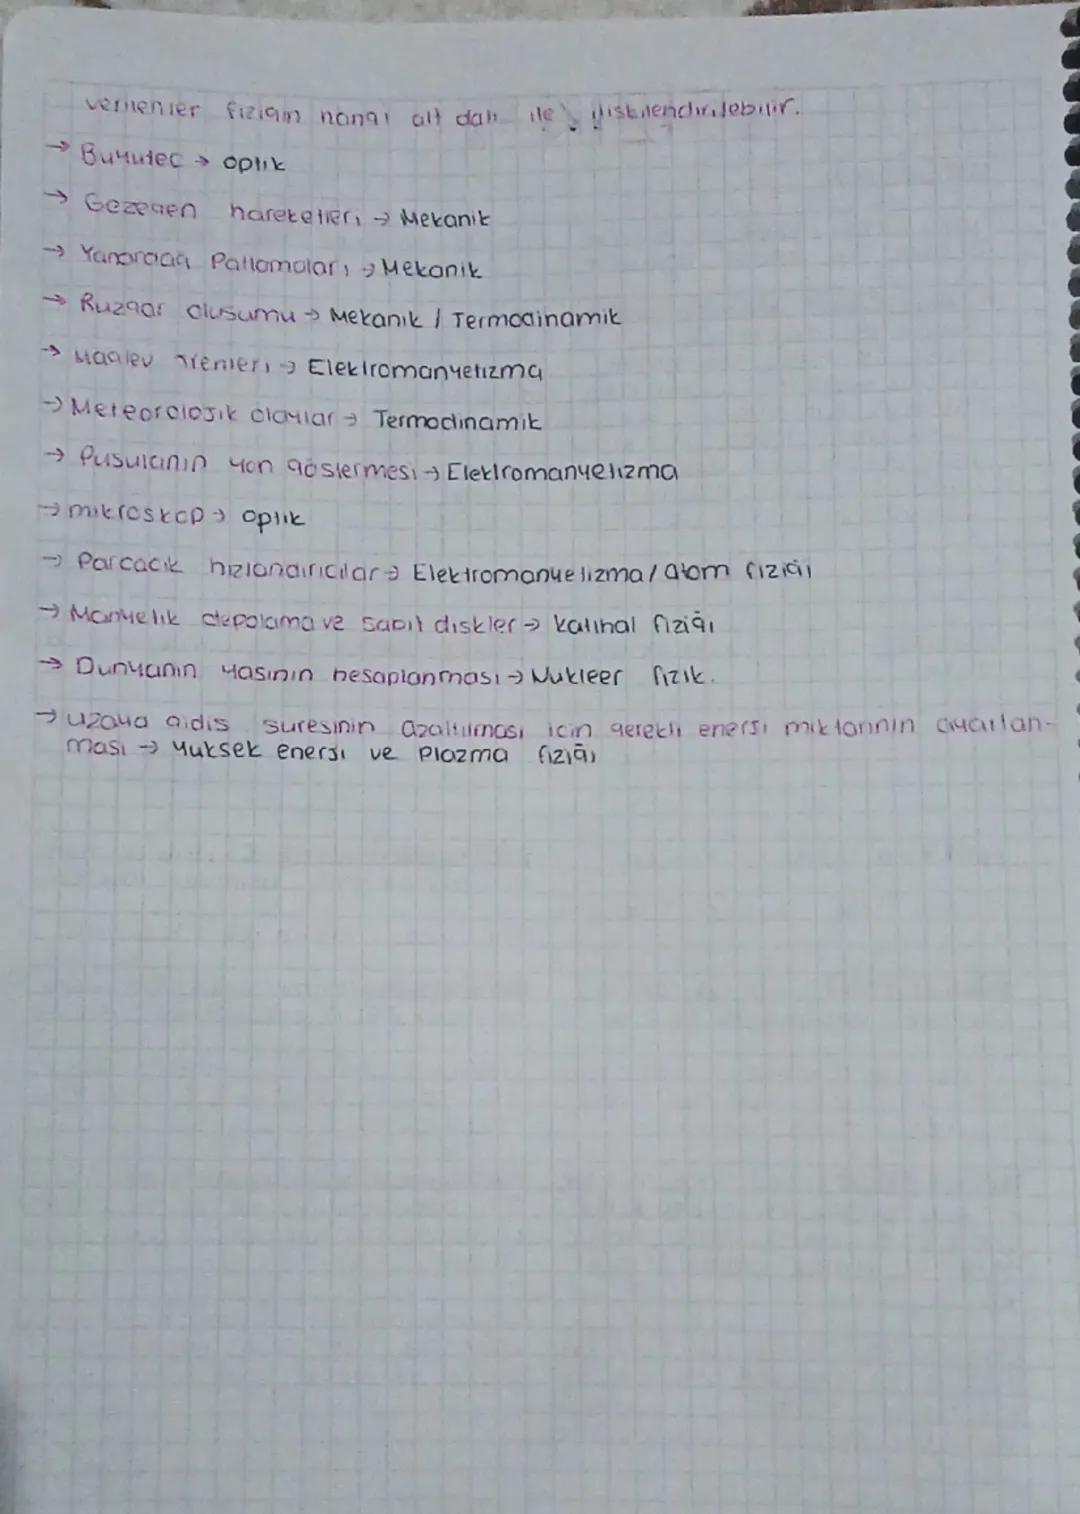 verilenler fiziğin hangi alt dalı ile ilişkilendirilebilir.
→ Büyüteç → optik
→ Gezegen hareketleri → Mekanik
→ Yanardağ Patlamaları → Mekanik
→ Rüzgar oluşumu → Mekanik / Termodinamik
→ Maglev trenleri → Elektromanyetizma
→ Meteorolojik olaylar → Termodinamik
→ Pusulanın yön göstermesi → Elektromanyetizma
→ mikroskop → optik
→ Parçacık hızlandırıcılar → Elektromanyetizma / Atom fiziği
→ Manyetik depolama ve sabit diskler → katıhal fiziği
→ Dünyanın yaşının hesaplanması → Nükleer fizik.
→ uzaya gidiş süresinin azaltılması için gerekli enerji miktarının ayarlan-
ması → yüksek enerji ve Plazma fiziği